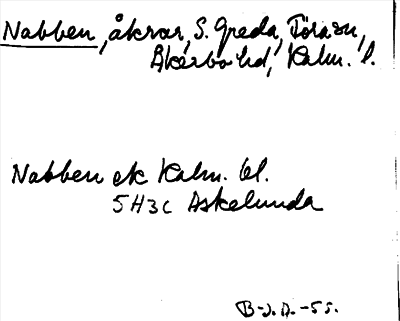 Nabben, åkrar, S. Greda, Föra sn,
Åkerbo hd, Kalm. l.
Nabben ek Kalm. bl.
5H3c Askelunda
B-J.D.-55.